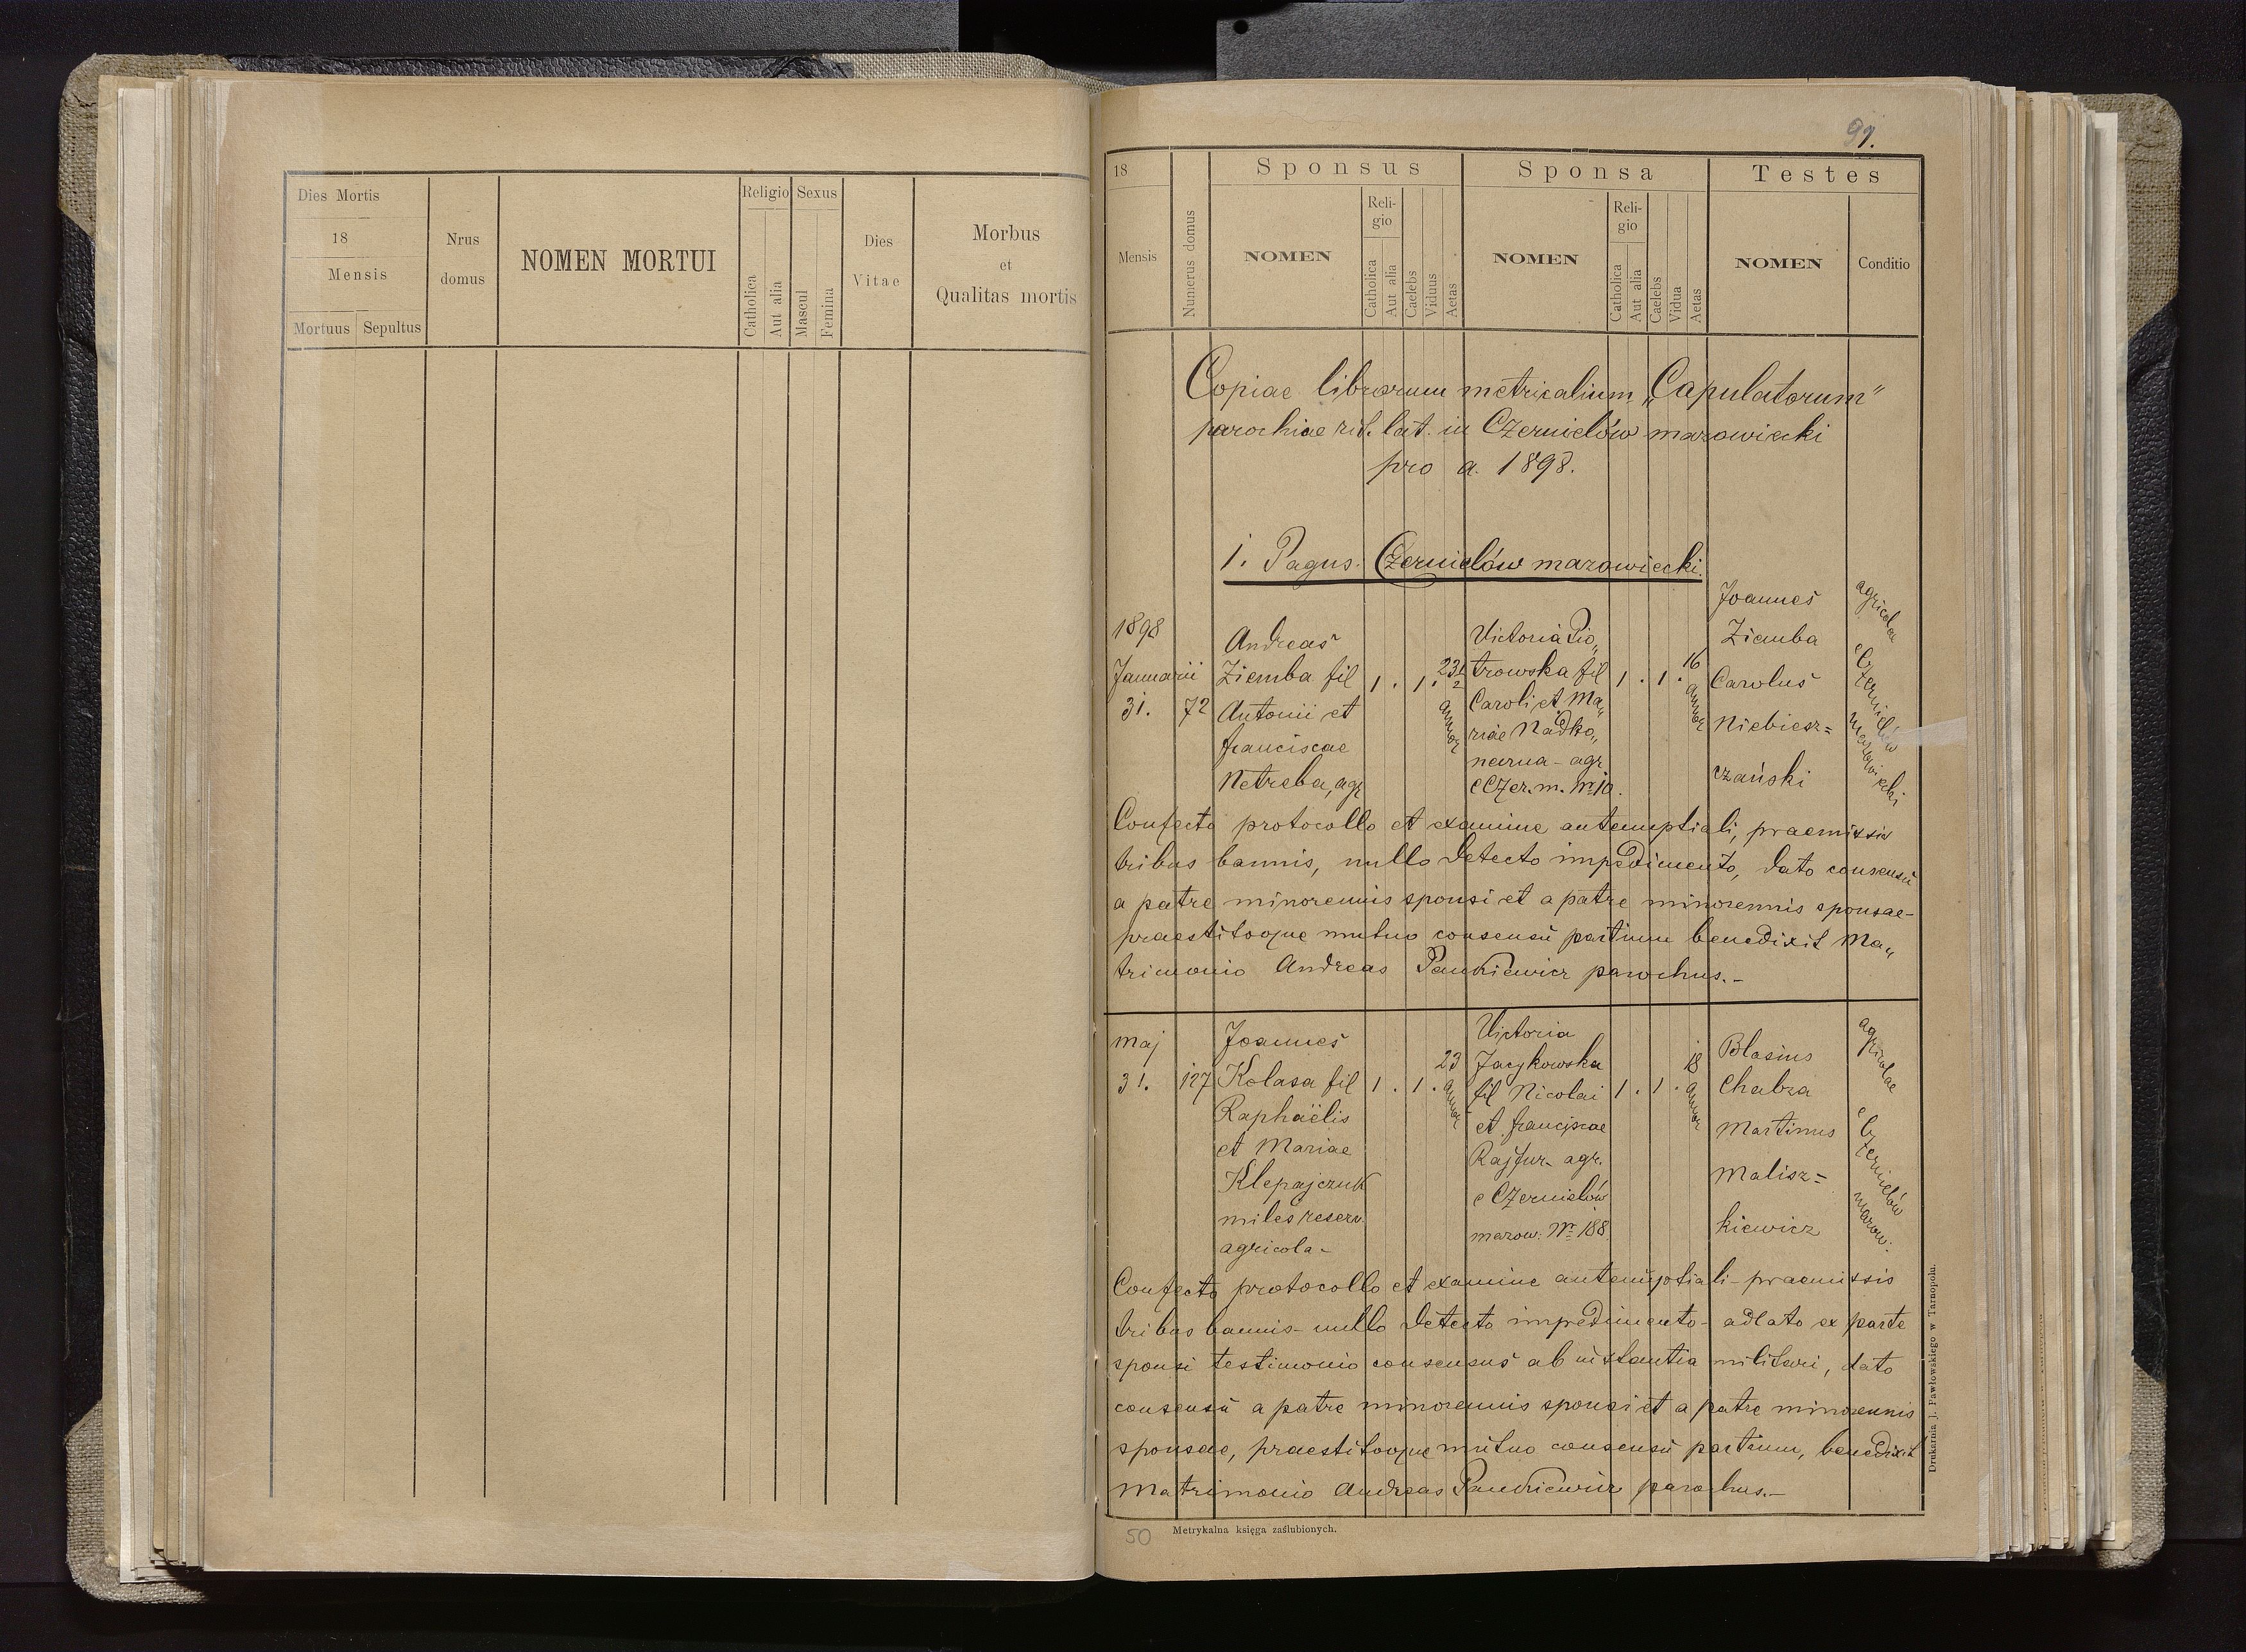 Dies Mortis
18
Mensis
Mortuus Sepultus
Nrus
domus
NOMEN MORTUI
Religio
Catholica
Aut alia
Sexus
Mascul
Femina
Dies
Vitae
Morbus
et
Qualitas mortis
91.
18
Mensis
Numerus domus
Sponsus
NOMEN
Reli-
gio
Catholica
Aut alia
Caelebs
Viduus
Aetas
Sponsa
NOMEN
Reli-
gio
Catholica
Aut alia
Caelebs
Vidua
Aetas
Testes
NOMEN
Conditio
Copiae librorum metricalium „Capulatorum"
parochiae rit. lat. in Czernielów mazowiecki
pro a. 1898.
1. Pagus. Czernielów mazowiecki.
1898
Januarii
31.
72
Andreas
Ziemba fil
Antonii et
franciscae
Netreba, agr
1 . 1 .
23 1/2
annor
Victoria Pio„
trowska fil
Caroli et Ma„
riae Nadko„
nearna - agr
e Czer. m. Nr 10.
1 . 1 .
16
annor
Joannes
Ziemba
Carolus
Niebiesz=
czański
agricolae
e Czernielów
mazowiecki
Confecto protocollo et examine antenuptiali, praemissis
tribus bannis, nullo detecto impedimento, dato consensu
a patre minorennis sponsi et a patre minorennis sponsae -
praestitoque mutuo consensu partium benedixit Ma„
trimonio Andreas Pankiewicz parochus. -
Maj
31.
127
Joannes
Kolasa fil
Raphaëlis
et Mariae
Klepajczuk
miles reserv.
agricola -
1 . 1 .
23
annor
Victoria
Jacykowska
fil Nicolai
et franciscae
Rajfur - agr.
e Czernielów
mazow. Nr 188.
1 . 1 .
18
annor
Blasius
Chabza
Martinus
Malisz=
kiewicz
agricolae
e Czernielów
mazow.
Confecto protocollo et examine antenuptiali - praemissis
tribus bannis - nullo detecto impedimento - adlato ex parte
sponsi testimonio consensus ab instantia militari, dato
consensu a patre minorennis sponsi et a patre minorennis
sponsae, praestitoque mutuo consensu partium, benedixit
Matrimonio Andreas Pankiewicz parochus. -
Drukarnia J. Pawłowskiego w Tarnopolu.
50
Metrykalna księga zaślubionych.